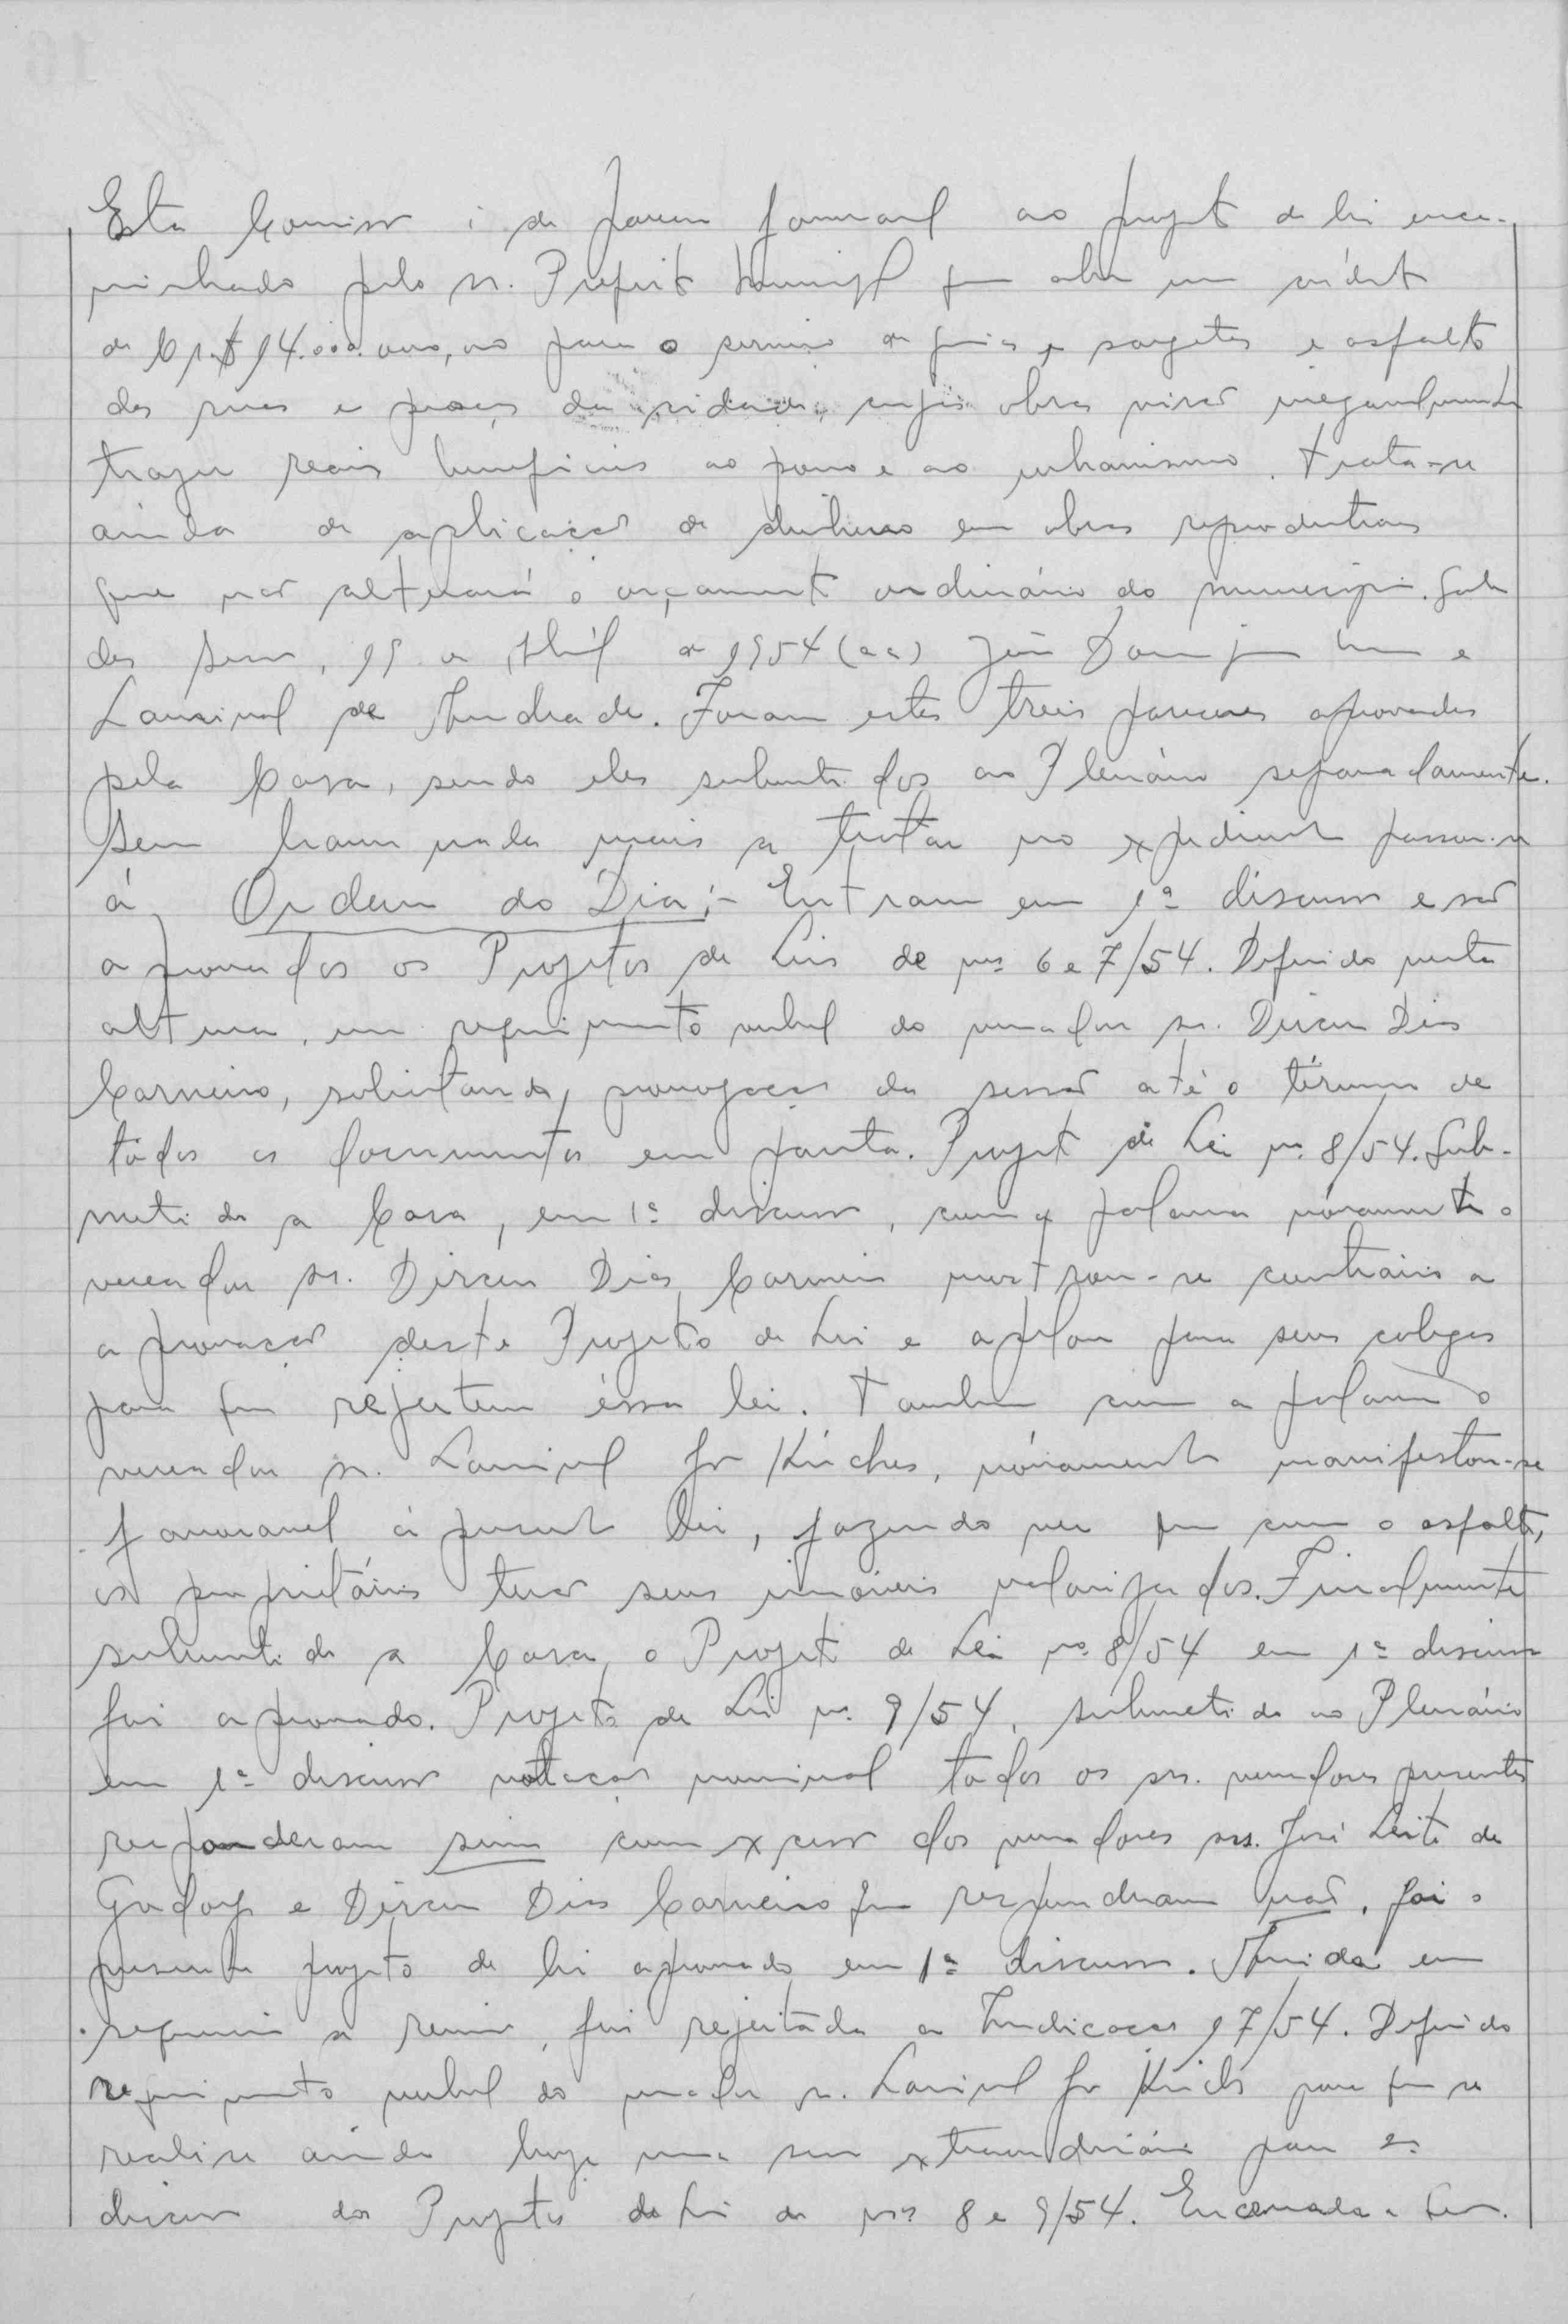 Esta Comissão é de parecer favoravel ao projeto de lei enca-
minhado pelo sr. Prefeito Municipal que abre um crédito
de Cr.$ 14.000.000,00 para o serviço de guias, sargetas e asfalto
das ruas e praças da cidade, cujas obras virão inegavelmente
trazer reais beneficios ao povo e ao urbanismo. Trata-se
ainda de aplicação de dinheiro em obras reprodutivas
que não alterará o orçamento ordinário do municipio. Sala
das Sessões, 19 de Abril de 1954 (aa) João
Lourival de Andrade. Foram estes treis pareceres aprovados
pela Casa, sendo eles submetidos ao Plenário separadamente.
Sem haver nada mais a tratar no expediente passou-se
á Ordem do Dia:- Entram em 1ª discussão e são
aprovados os Projetos de Leis de nºs 6 e 7/54. Deferido nesta
altura, um requerimento verbal do vereador sr. Dirceu Dias
Carneiro, solicitando, prorrogação da sessão até o término de
todos os documentos em pauta. Projeto de Lei nº 8/54. Sub-
metido a Casa, em 1ª discussão, com a palavra novamente o
vereador sr. Dirceu Dias Carneiro mostrou-se contrário a
aprovação deste Projeto de Lei e apelou para seus colegas
para que rejeitem éssa lei. Tambem com a palavra o
vereador sr. Lourival novamente manifestou-se
favoravel á presente lei, fazendo ver que com o asfalto,
os proprietários terão seus imoveis valorizados. Finalmente
submetido a Casa, o Projeto de Lei nº 8/54 em 1ª discussão
foi aprovado. Projeto de Lei nº 9/54, submetido ao Plenário
em 1ª discussão votação nominal todos os srs. vereadores presentes
responderam sim com excessão dos vereadores srs. José Leite de
Godoy e Dirceu Dias Carneiro que responderam não, foi o
presente projeto de lei aprovado em 1ª discussão. Ainda em
seguida foi rejeitada a Indicação 17/54. Deferido
requerimento verbal do vereador sr. Lourival para que se
realise ainda hoje uma sessão extraordinária para 2ª
discussão dos Projetos de Lei de nºs 8 e 9/54. Encerrada a